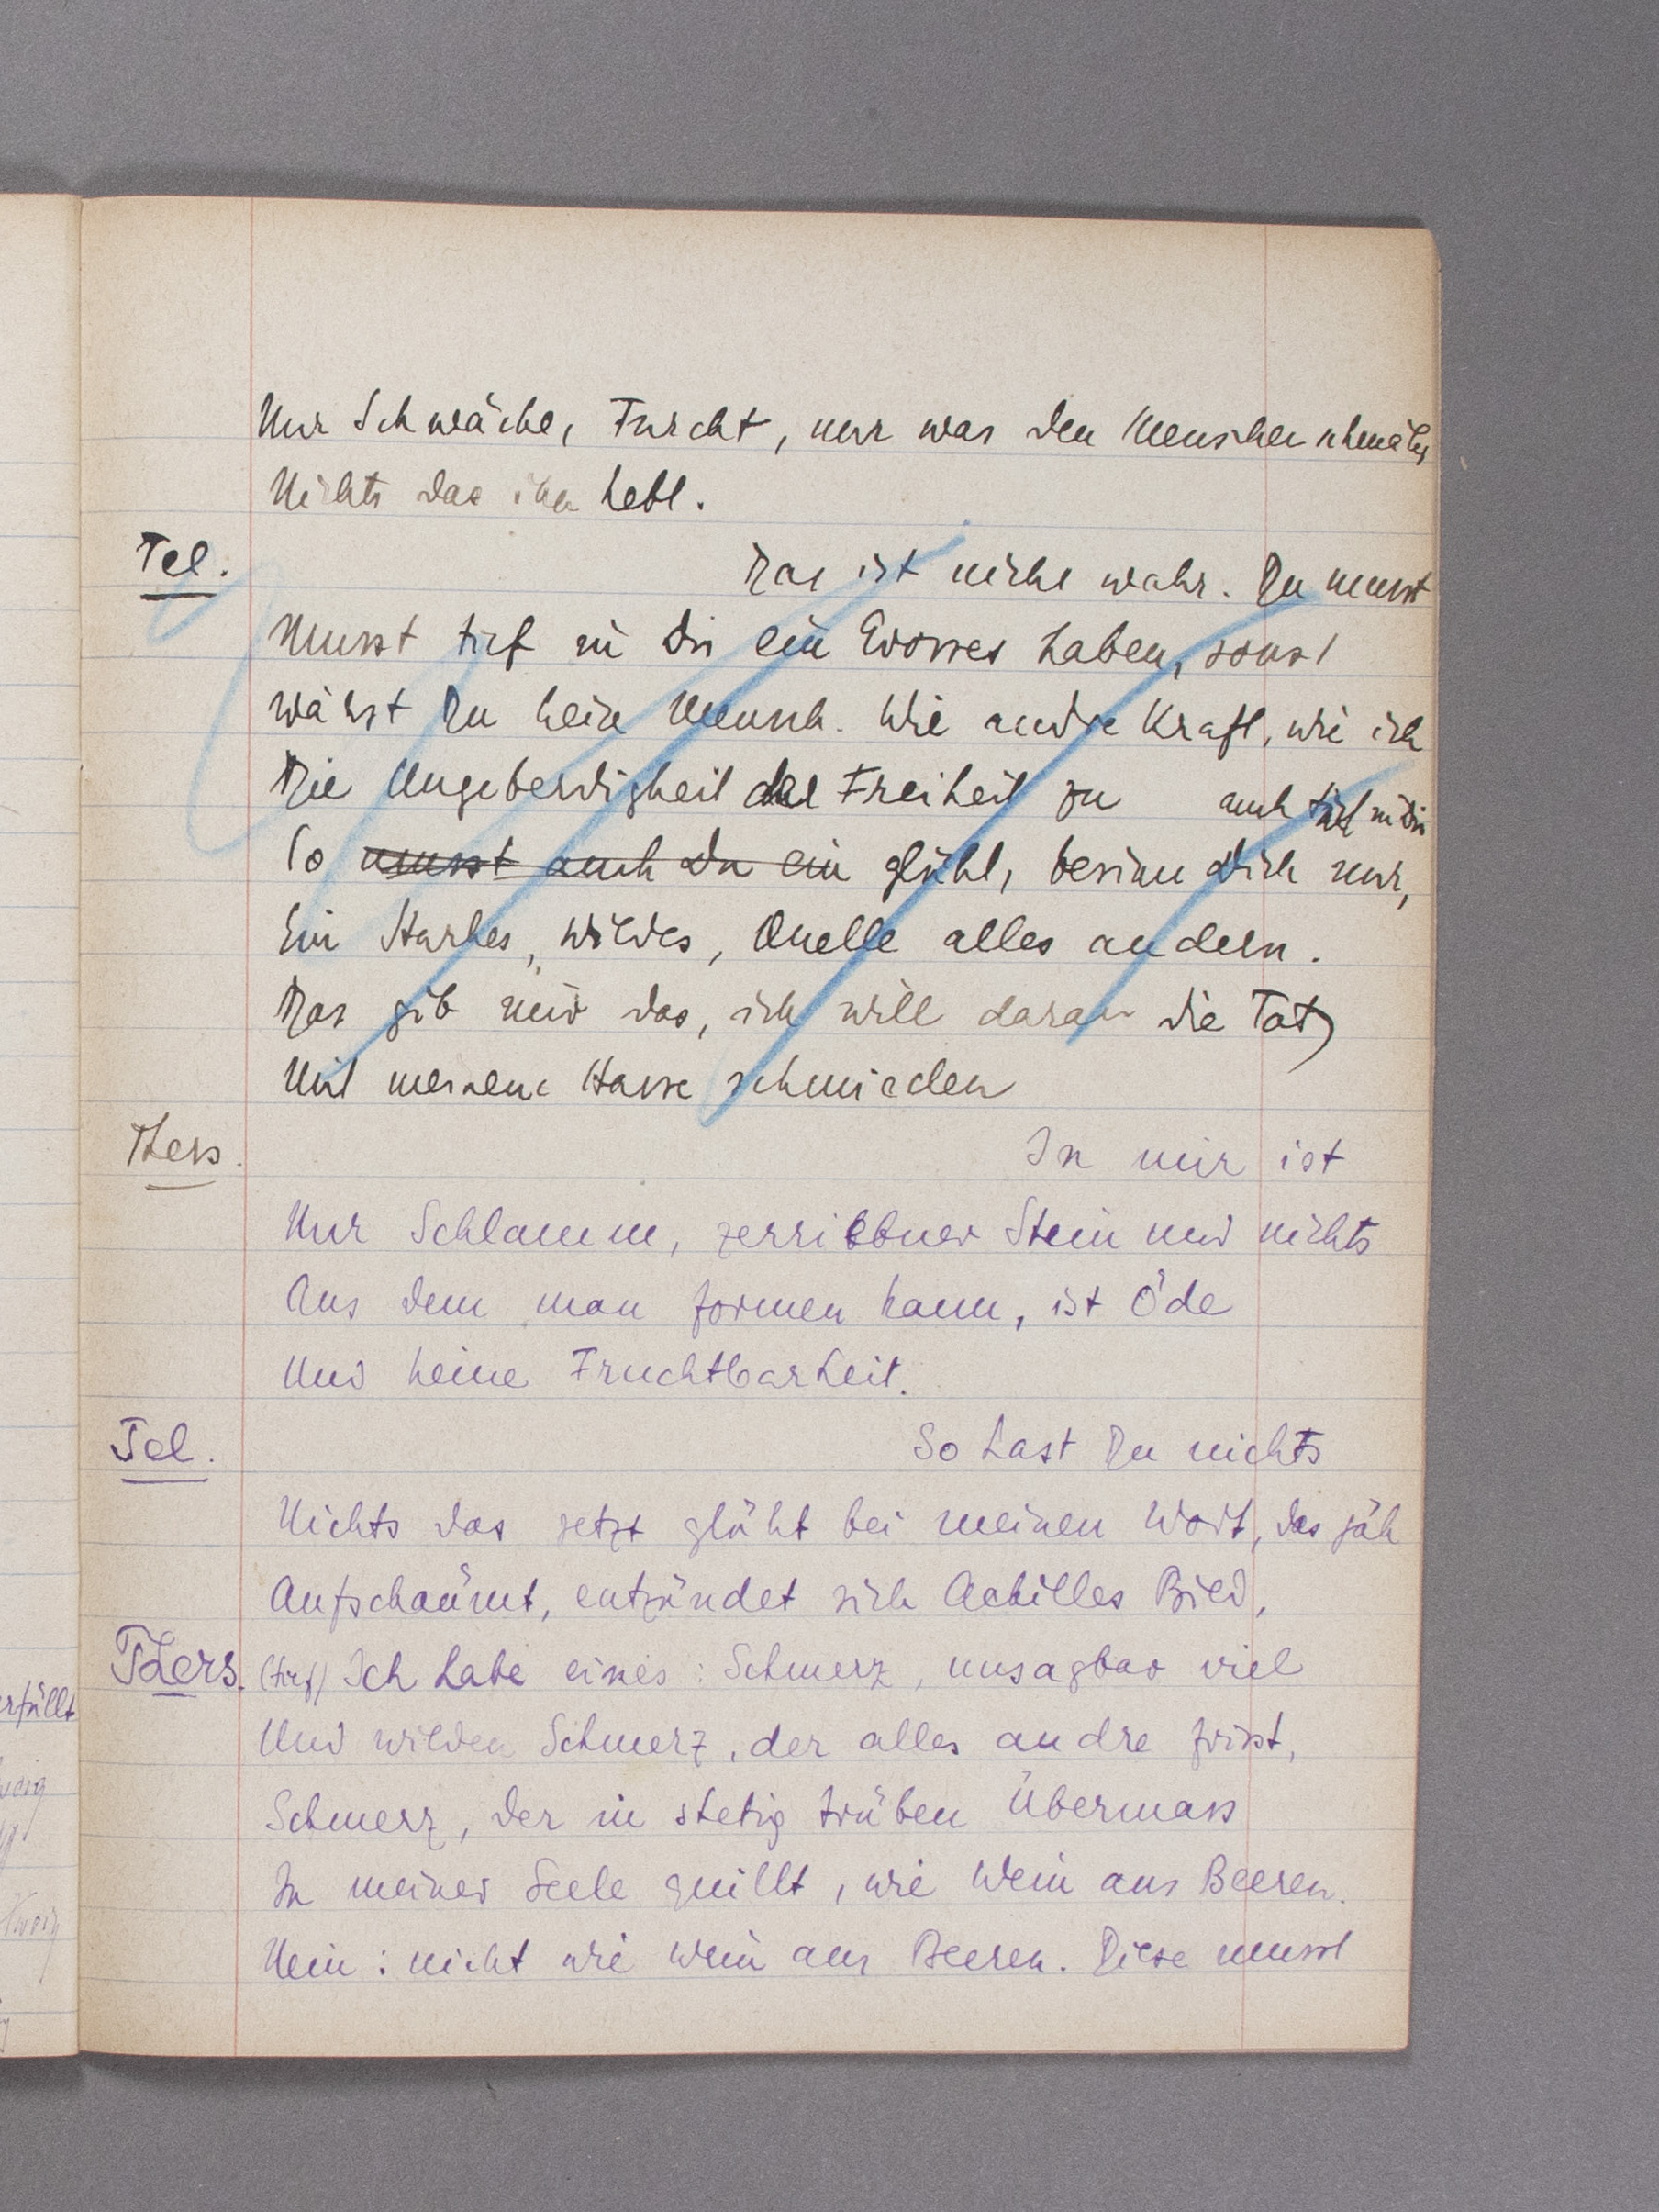 Nur Schwäche, Furcht, nur was den Menschen schmäht
Nichts das ihn hebt.
Tel.
Das ist nicht wahr. Du musst
Musst tief in dir ein Grosses haben, sonst
wärst Du kein Mensch. Wie andre Kraft, wie ich
Die Ungeberdigkeit der Freiheit zu
auch tief in dir
So musst auch du ein glüht, besinn dich nur,
Ein Starkes, wildes, Quelle alles andern.
Das gib mir das, ich will daraus die Tat
Mit meinem Hasse schmieden
Thers.
In mir ist
Nur Schlamm, zerriebner Stein und nichts
Aus dem man formen kann, ist Öde
Und keine Fruchtbarkeit.
Tel.
So hast Du nichts
Nichts das jetzt glüht bei meinen Wort, das jäh
Aufschaümt, entzündet sich Achilles Bild,
Thers. (tief) Ich habe eines: Schmerz, unsagbar viel
Und wilden Schmerz, der alles andre frisst,
Schmerz, der in stetig trüben Übermass
In meiner Seele quillt, wie Wein aus Beeren.
Nein: nicht wie Wein aus Beeren. Diese musst
erfüllt